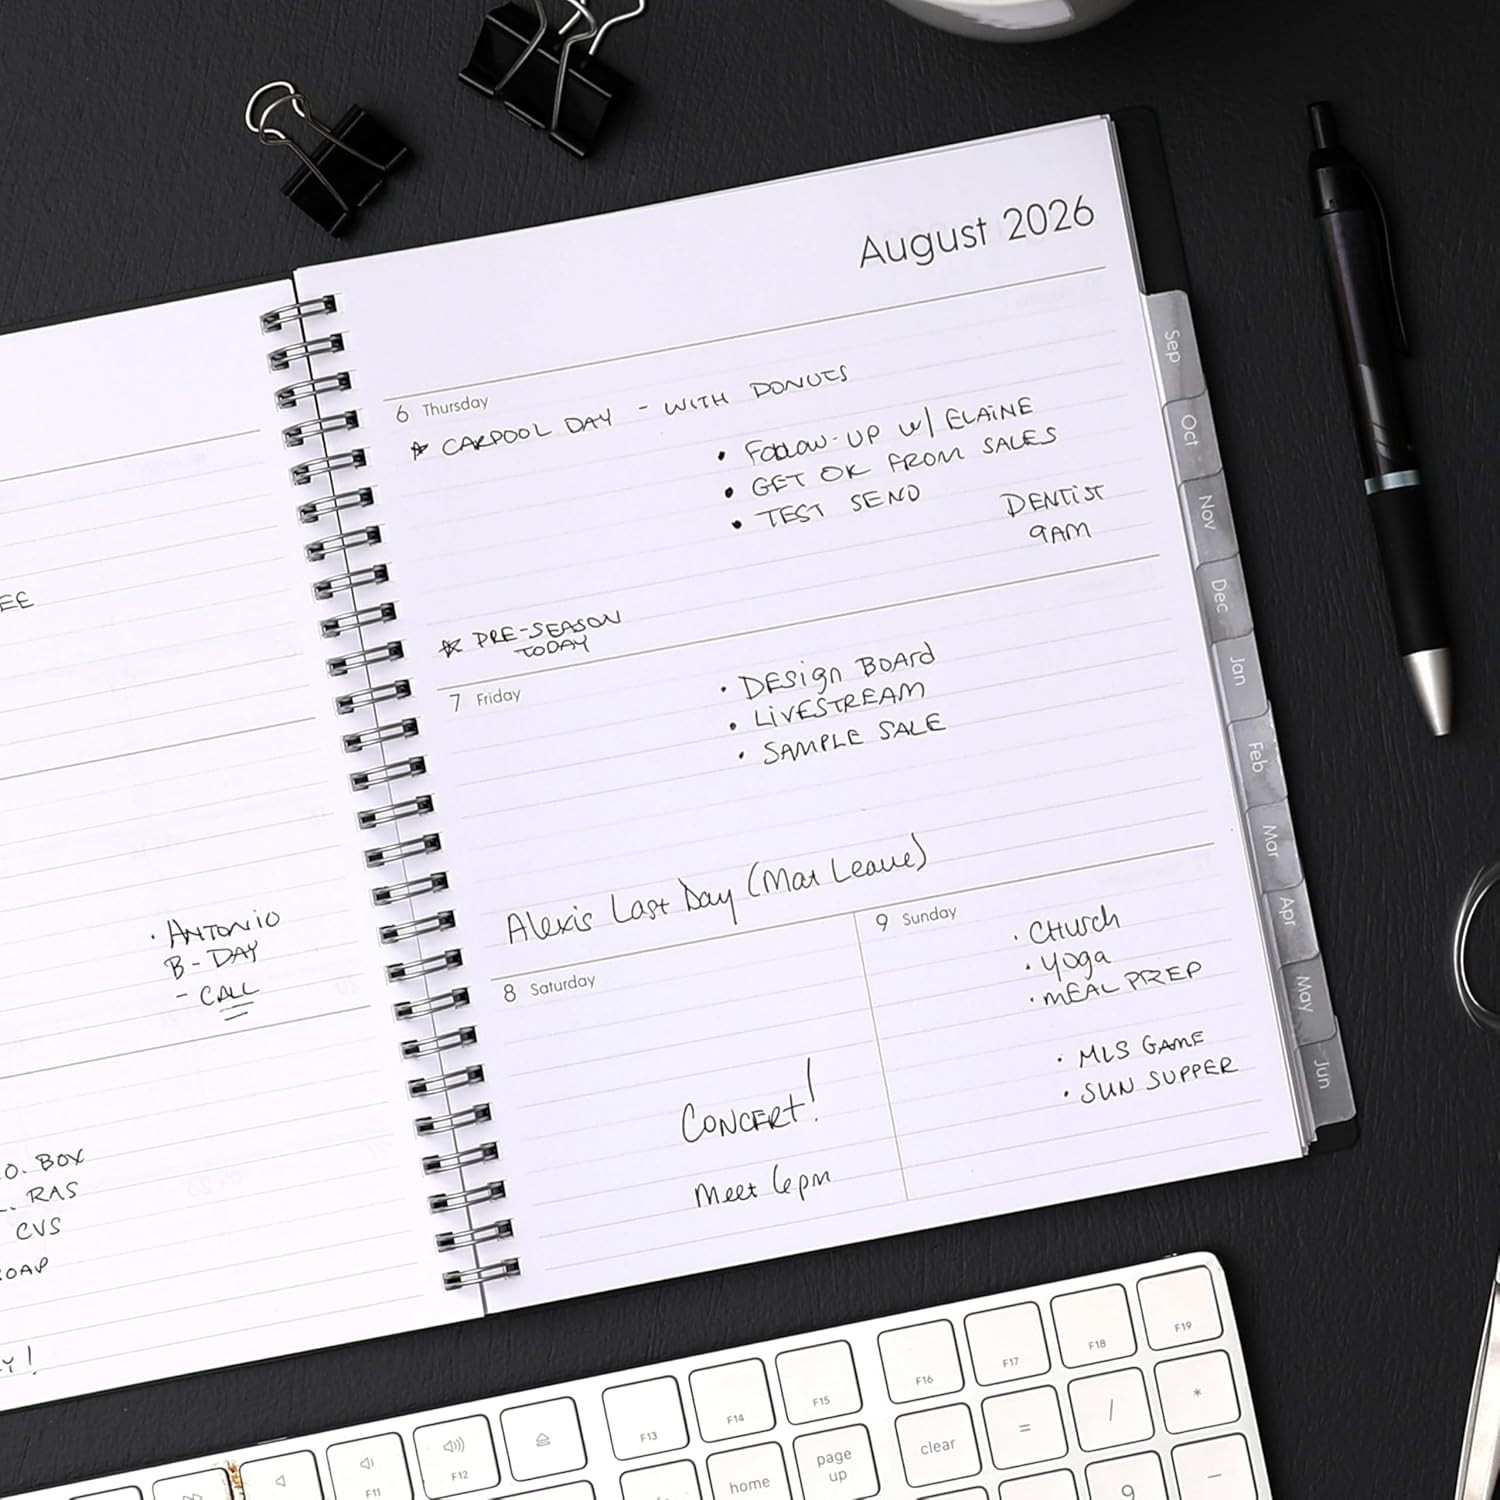 August 2026
6 Thursday
CARPOOL DAY - WITH DONUTS
• FOLLOW-UP W/ ELAINE
• GET OK FROM SALES
• TEST SEND
DENTIST
9AM
PRE-SEASON
TODAY
7 Friday
• DESIGN BOARD
• LIVESTREAM
• SAMPLE SALE
Alexis Last Day (Mat Leave)
8 Saturday
CONCERT!
Meet 6pm
9 Sunday
• CHURCH
• YOGA
• MEAL PREP
• MLS GAME
• SUN SUPPER
• ANTONIO
B-DAY
- CALL
BOX
RAS
CVS
Sep
Oct
Nov
Dec
Jan
Feb
Mar
Apr
May
Jun
F11
F12
F13
F14
F15
F16
F17
F18
F19
home
page
up
clear
=
/
*
9
-